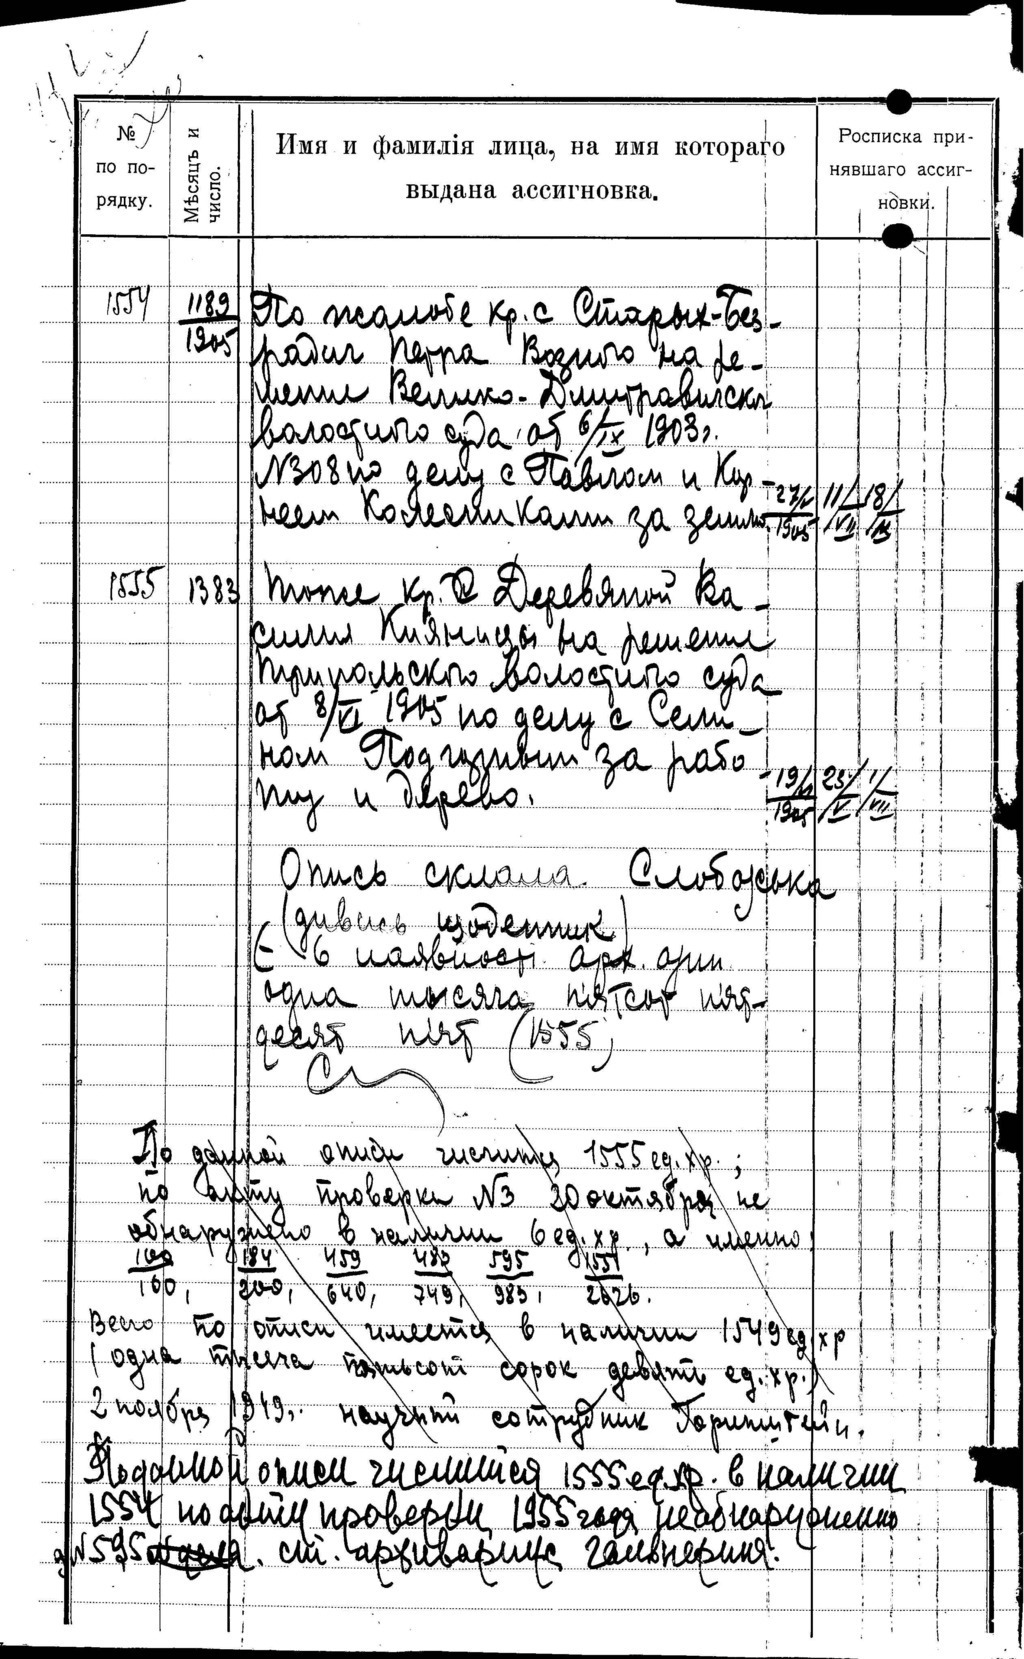 № по по-рядку.
Мѣсяцъ и число.
Имя и фамилія лица, на имя котораго
выдана ассигновка.
Росписка при-
нявшаго ассиг-
новки.
1554 1189/1905 По жалобе кр. с Старых-Без-
радич Петра Возного на ре-
шение Велико-Дмитравичск
волостного суда от 6/IX 1903г.
№308 по делу с Павлом и Кор-
неем Колесниками за землю. 27/ 1905 11/VII 18/
1555 1383 Тоже кр. с Деревяной Ва-
силия Кияницы на решение
Трипольского волостного суда
от 8/VI 1905 по делу с Семи-
ном за рабо
ту и дерево. 19/ 1905 23/V 1/VII
Опись склала Слободська
(дивись щоденник)
Є в наявності арх. один
одна тысяча пятсот пят-
десят пят (1555)
По данной описи числится 1555 ед. хр.;
по акту проверки №3 20 октября не
обнаружено в наличии 6 ед. хр., а именно:
160, 184/200, 459/640, 483/749, 595/983, 1551/2626.
Всего по описи имеется в наличии 1549 ед хр
(одна тысяча пятьсот сорок девять ед. хр.)
2 ноября 1949г. научный сотрудник
По данной описи числится 1555 ед. хр. в наличии
1554 по акту проверки 1955 года необнаруженно
№595 ст. архивариус Гальперина.